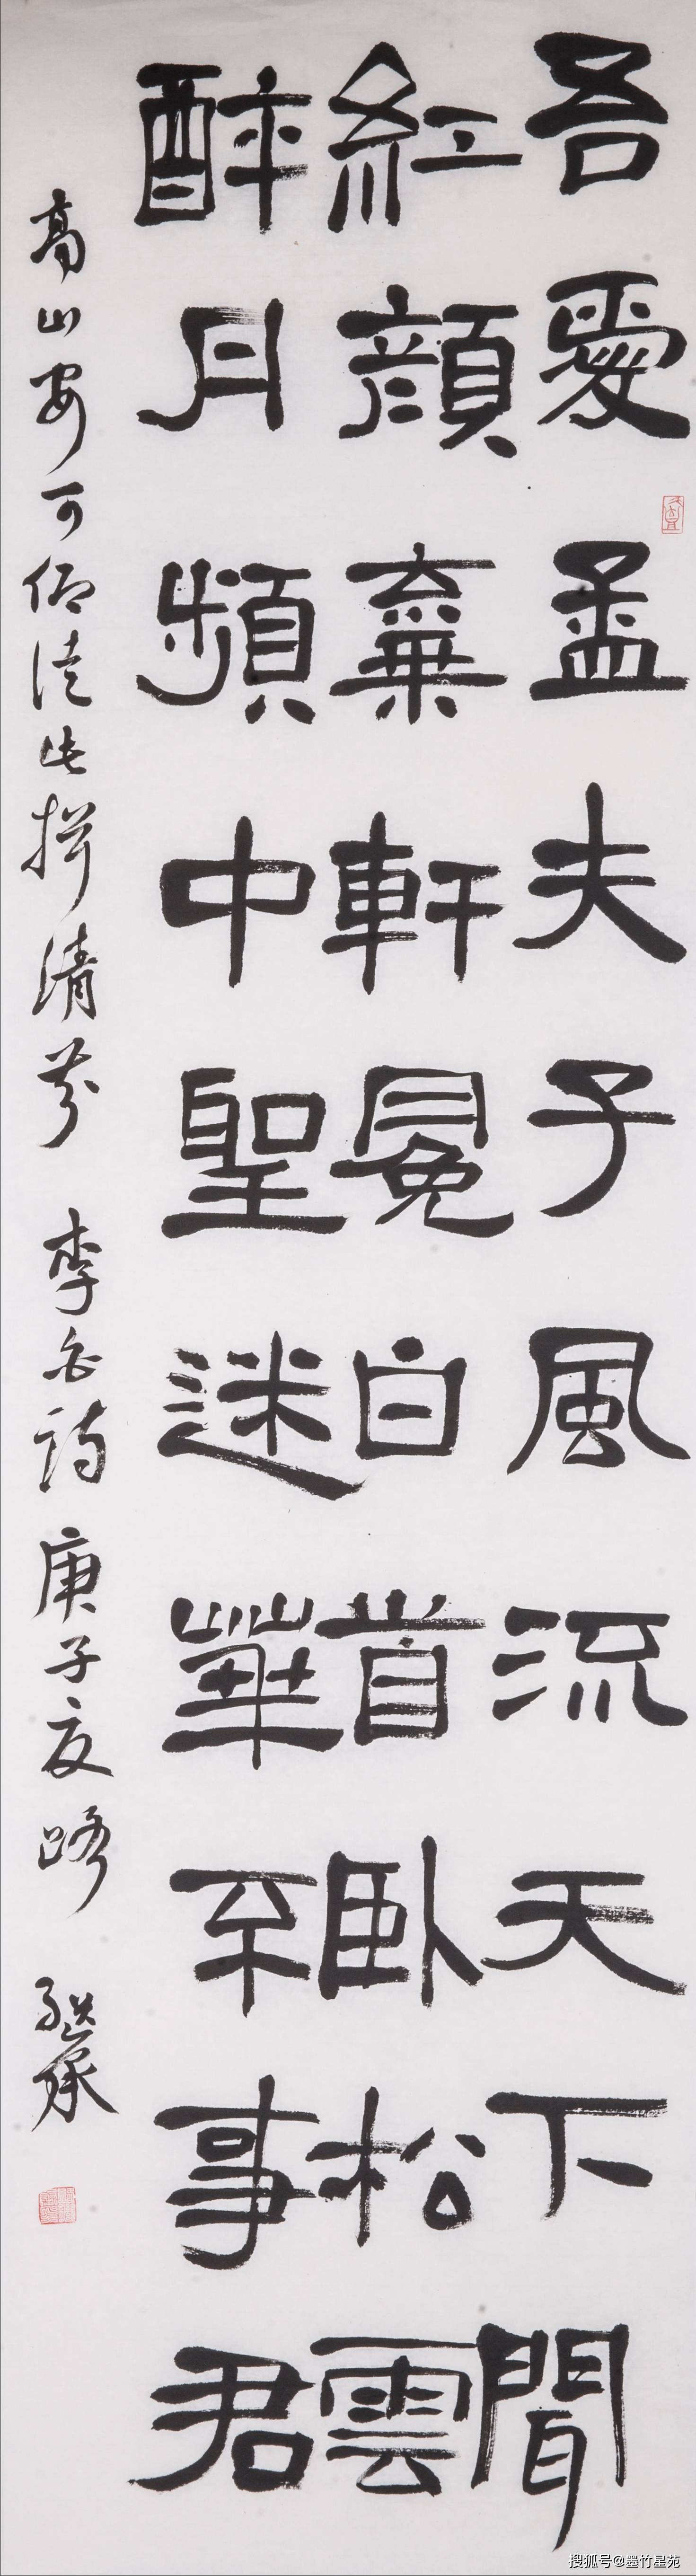 吾愛孟夫子風流天下聞
紅顔棄軒冕白首臥松雲
醉月頻中聖迷華不事君
高山安可仰徒此揖清芬 李白詩 庚子夏 继承
搜狐号@墨竹星苑